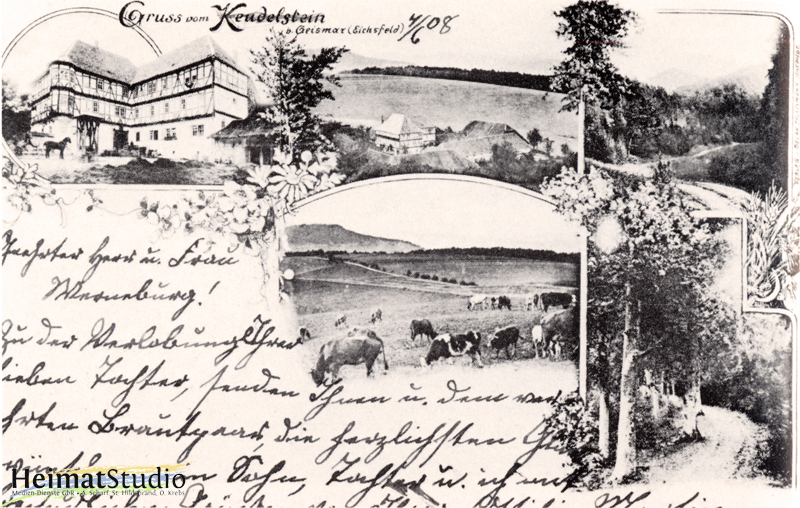 Gruss vom Keudelstein
b. Geismar (Eichsfeld) 4/6 08
Geehrter Herr u. Frau
Werneburg!
Zu der Verlobung Ihrer
lieben Tochter, senden Ihnen u. dem ver
ehrten Brautpaar, die herzlichsten Gl
Sohn, Tochter u. ich mit
HeimatStudio
Medien Dienste GbR • A. Scharf, St. Hildebrand, O. Krebs